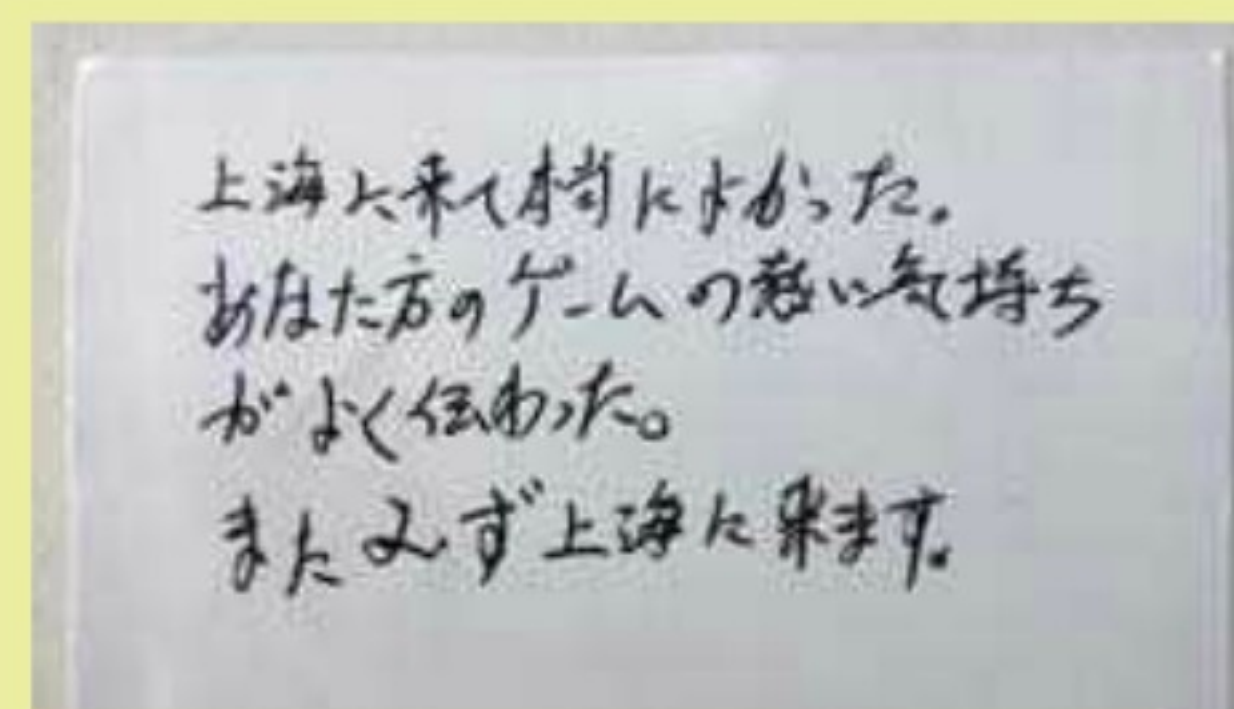 上海に来て本当によかった。
あなた方のゲームの熱い気持ち
がよく伝わった。
また必ず上海に来ます。